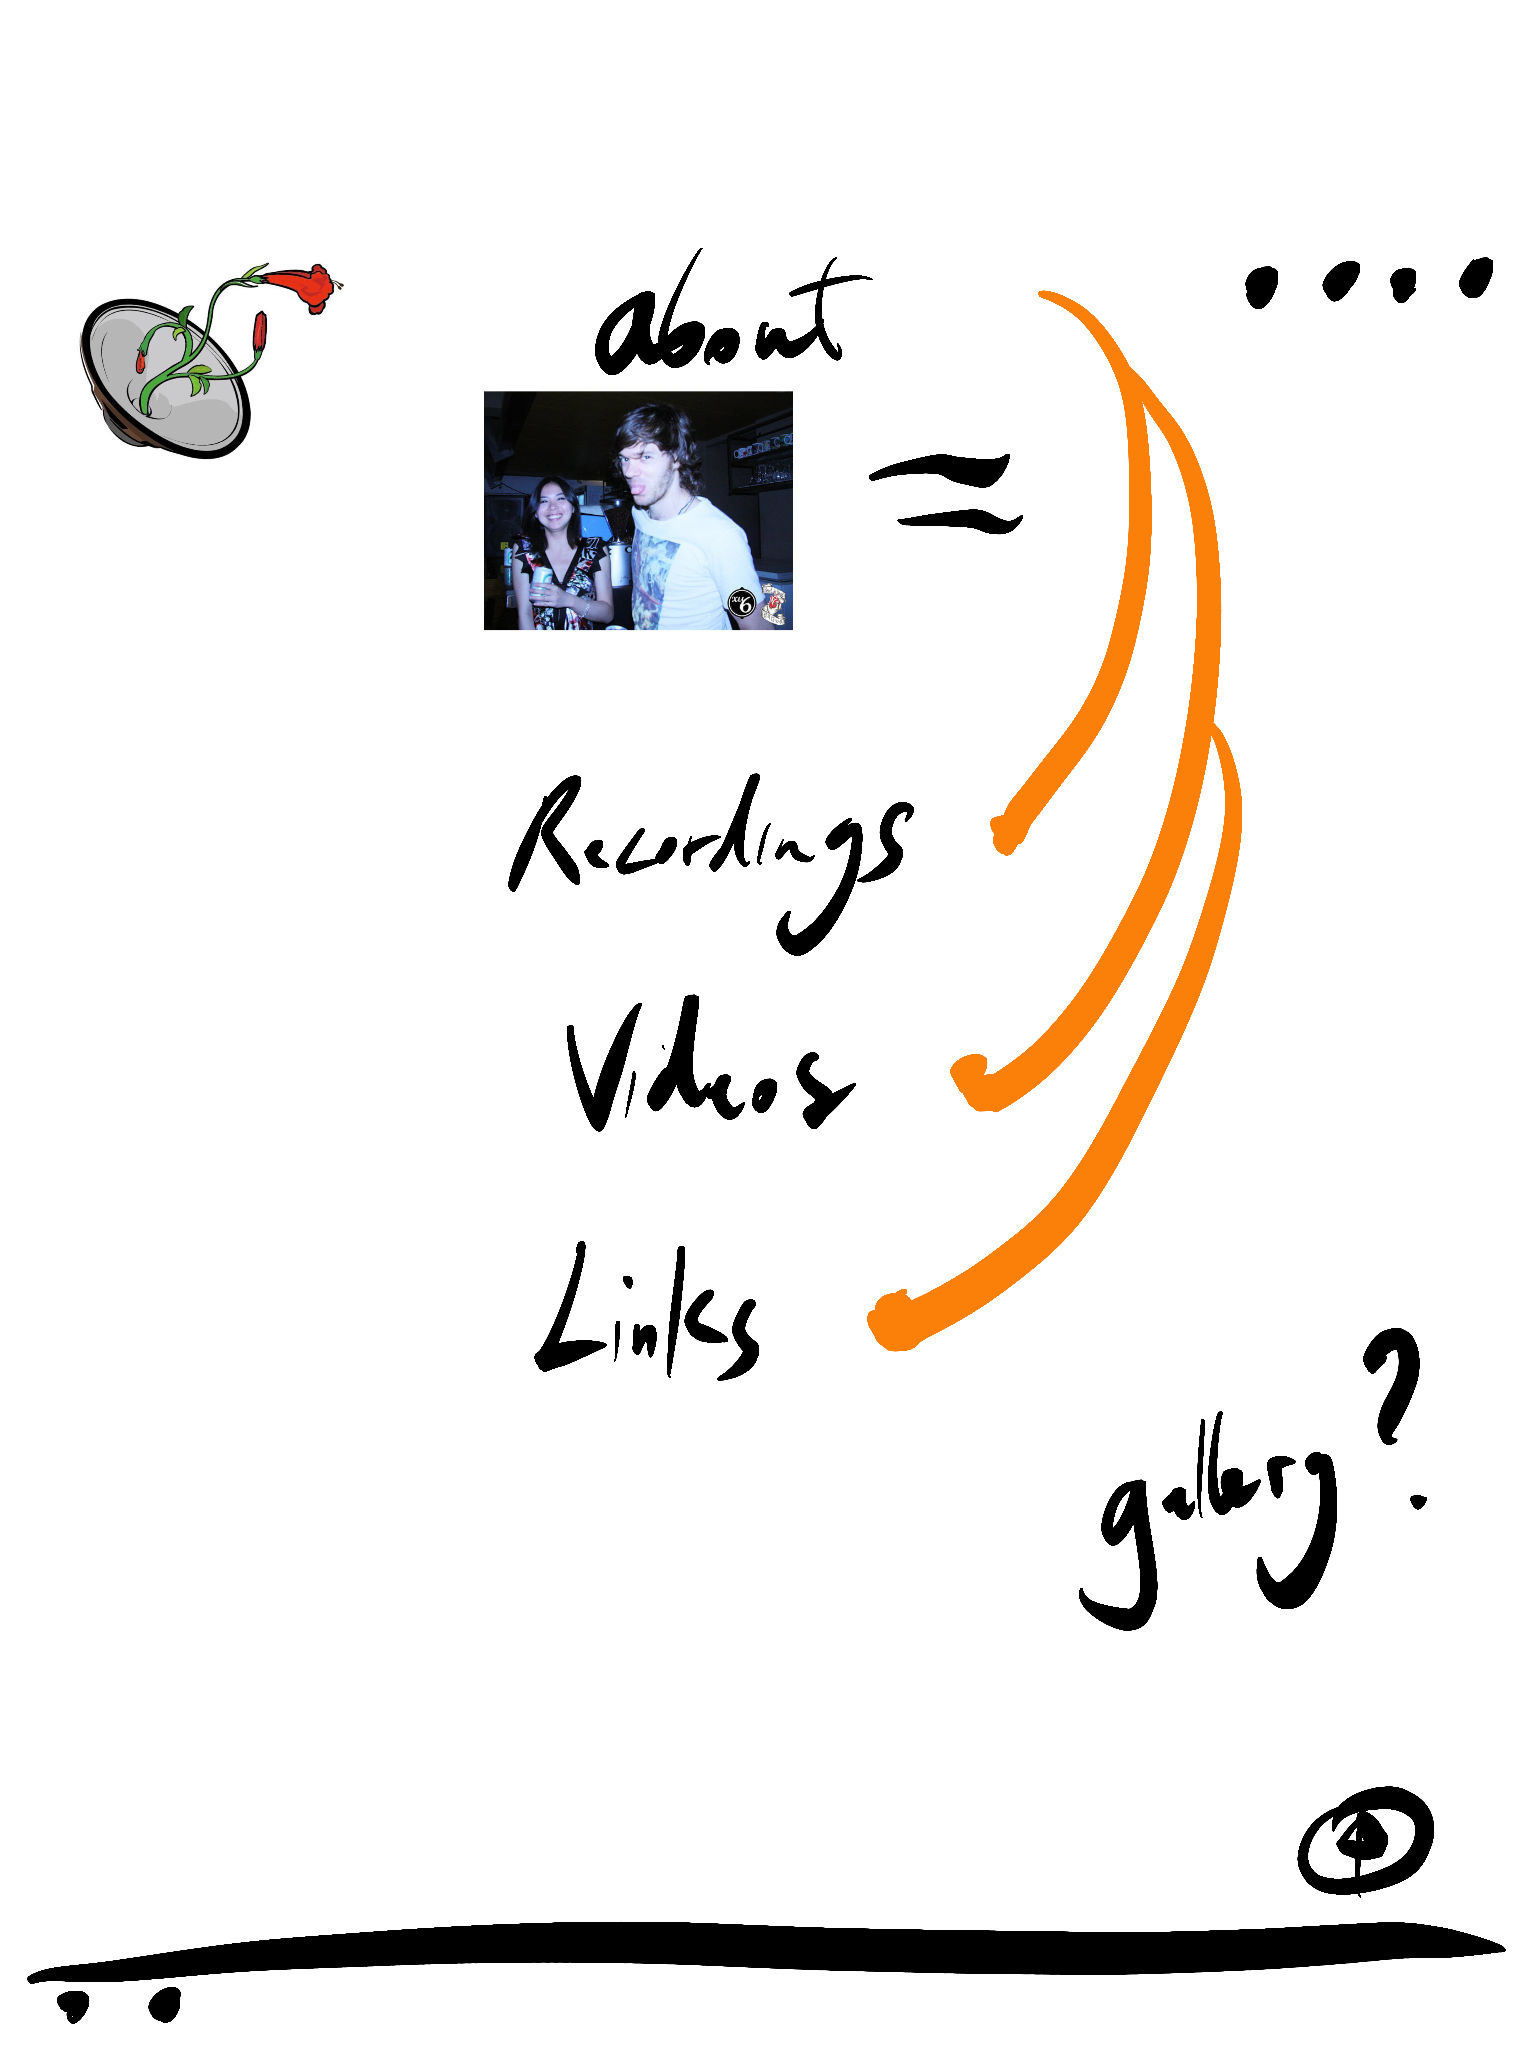 about
Recordings
Videos
Links
gallery?